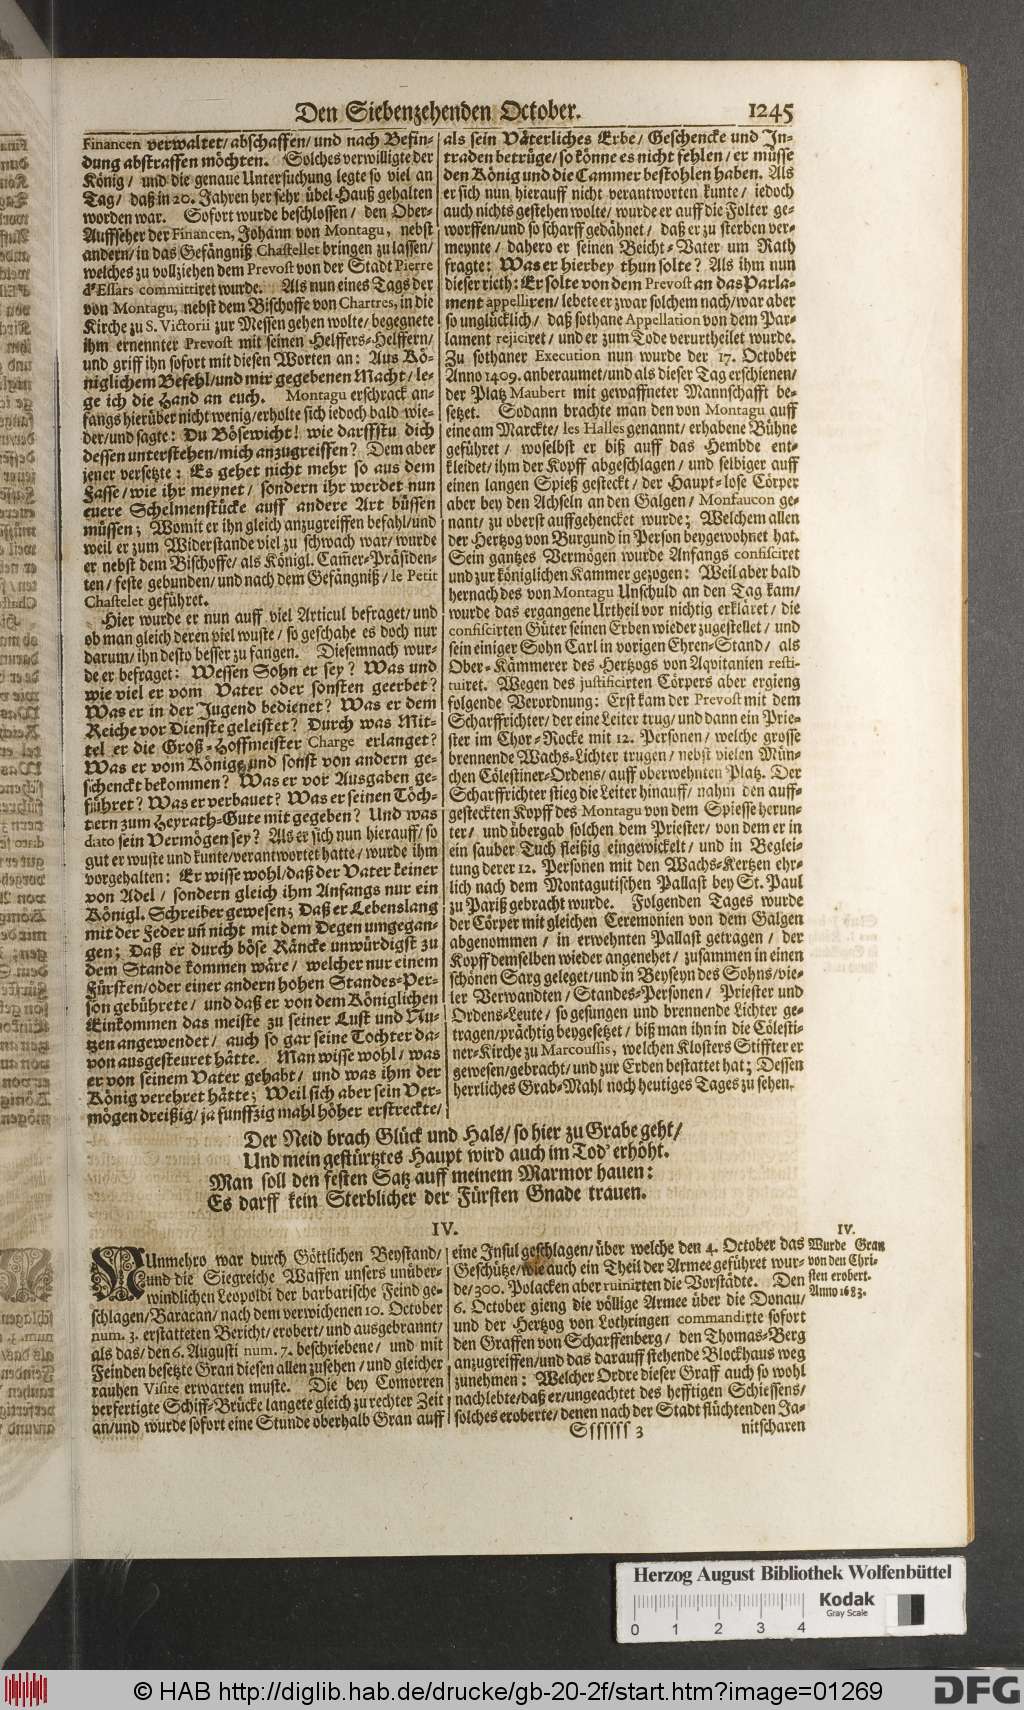 Den Siebenzehenden October.
1245
Financen verwaltet/ abschaffen/ und nach Befin-
dung abstraffen möchten. Solches verwilligte der
König/ und die genaue Untersuchung legte so viel an
Tag/ daß in 20. Jahren her sehr übel-Hauß gehalten
worden war. Sofort wurde beschlossen/ den Ober-
Auffseher der Financen, Johann von Montagu, nebst
andern/ in das Gefängniß Chastellet bringen zu lassen/
welches zu vollziehen dem Prevost von der Stadt Pierre
d'Essars committiret wurde. Als nun eines Tags der
von Montagu, nebst dem Bischoffe von Chartres, in die
Kirche zu S. Victorii zur Messen gehen wolte/ begegnete
ihm ernennter Prevost mit seinen Helffers-Helffern/
und griff ihn sofort mit diesen Worten an: Aus Kö-
niglichem Befehl/ und mir gegebenen Macht/ le-
ge ich die Hand an euch. Montagu erschrack an-
fangs hierüber nicht wenig/ erholte sich iedoch bald wie-
der/ und sagte: Du Bösewicht! wie darffstu dich
dessen unterstehen/ mich anzugreiffen? Dem aber
jener versetzte: Es gehet nicht mehr so aus dem
Fasse/ wie ihr meynet/ sondern ihr werdet nun
euere Schelmenstücke auff andere Art büssen
müssen; Womit er ihn gleich anzugreiffen befahl/ und
weil er zum Widerstande viel zu schwach war/ wurde
er nebst dem Bischoffe/ als Königl. Cam̃er-Präsiden-
ten/ feste gebunden/ und nach dem Gefängniß/ le Petit
Chastelet geführet.
Hier wurde er nun auff viel Articul befraget/ und
ob man gleich deren viel wuste/ so geschahe es doch nur
darum/ ihn desto besser zu fangen. Diesemnach wur-
de er befraget: Wessen Sohn er sey? Was und
wie viel er vom Vater oder sonsten geerbet?
Was er in der Jugend bedienet? Was er dem
Reiche vor Dienste geleistet? Durch was Mit-
tel er die Groß-Hoffmeister Charge erlanget?
Was er vom Könige und sonst von andern ge-
schenckt bekommen? Was er vor Ausgaben ge-
führet? Was er verbauet? Was er seinen Töch-
tern zum Heyrath-Gute mit gegeben? Und was
dato sein Vermögen sey? Als er sich nun hierauff/ so
gut er wuste und kunte/ verantwortet hatte/ wurde ihm
vorgehalten: Er wisse wohl/ daß der Vater keiner
von Adel/ sondern gleich ihm Anfangs nur ein
Königl. Schreiber gewesen; Daß er Lebenslang
mit der Feder uñ nicht mit dem Degen umgegan-
gen; Daß er durch böse Räncke unwürdigst zu
dem Stande kommen wäre/ welcher nur einem
Fürsten/ oder einer andern hohen Standes-Per-
son gebührete/ und daß er von dem Königlichen
Einkommen das meiste zu seiner Lust und Nu-
tzen angewendet/ auch so gar seine Tochter da-
von ausgesteuret hätte. Man wisse wohl/ was
er von seinem Vater gehabt/ und was ihm der
König verehret hätte; Weil sich aber sein Ver-
mögen dreißig/ ja funffzig mahl höher erstreckte/
als sein Väterliches Erbe/ Geschencke und In-
traden betrüge/ so könne es nicht fehlen/ er müsse
den König und die Cammer bestohlen haben. Als
er sich nun hierauff nicht verantworten kunte/ iedoch
auch nichts gestehen wolte/ wurde er auff die Folter ge-
worffen/ und so scharff gedähnet/ daß er zu sterben ver-
meynte/ dahero er seinen Beicht-Vater um Rath
fragte: Was er hierbey thun solte? Als ihm nun
dieser rieth: Er solte von dem Prevost an das Parla-
ment appelliren/ lebete er zwar solchem nach/ war aber
so unglücklich/ daß sothane Appellation von dem Par-
lament rejiciret/ und er zum Tode verurtheilet wurde.
Zu sothaner Execution nun wurde der 17. October
Anno 1409. anberaumet/ und als dieser Tag erschienen/
der Platz Maubert mit gewaffneter Mannschafft be-
setzet. Sodann brachte man den von Montagu auff
eine am Marckte/ les Halles genannt/ erhabene Bühne
geführet/ woselbst er biß auff das Hembde ent-
kleidet/ ihm der Kopff abgeschlagen/ und selbiger auff
einen langen Spieß gesteckt/ der Haupt-lose Cörper
aber bey den Achseln an den Galgen/ Monfaucon ge-
nant/ zu oberst auffgehencket wurde; Welchem allen
der Hertzog von Burgund in Person beygewohnet hat.
Sein gantzes Vermögen wurde Anfangs confisciret
und zur königlichen Kammer gezogen: Weil aber bald
hernach des von Montagu Unschuld an den Tag kam/
wurde das ergangene Urtheil vor nichtig erkläret/ die
confiscirten Güter seinen Erben wieder zugestellet/ und
sein einiger Sohn Carl in vorigen Ehren-Stand/ als
Ober-Kämmerer des Hertzogs von Aqvitanien resti-
tuiret. Wegen des justificirten Cörpers aber ergieng
folgende Verordnung: Erst kam der Prevost mit dem
Scharffrichter/ der eine Leiter trug/ und dann ein Prie-
ster im Chor-Rocke mit 12. Personen/ welche grosse
brennende Wachs-Lichter trugen/ nebst vielen Mün-
chen Cölestiner-Ordens/ auff oberwehnten Platz. Der
Scharffrichter stieg die Leiter hinauff/ nahm den auff-
gesteckten Kopff des Montagu von dem Spiesse herun-
ter/ und übergab solchen dem Priester/ von dem er in
ein sauber Tuch fleißig eingewickelt/ und in Beglei-
tung derer 12. Personen mit den Wachs-Kertzen ehr-
lich nach dem Montagutischen Pallast bey St. Paul
zu Pariß gebracht wurde. Folgenden Tages wurde
der Cörper mit gleichen Ceremonien von dem Galgen
abgenommen/ in erwehnten Pallast getragen/ der
Kopff demselben wieder angenehet/ zusammen in einen
schönen Sarg geleget/ und in Beyseyn des Sohns/ vie-
ler Verwandten/ Standes-Personen/ Priester und
Ordens-Leute/ so gesungen und brennende Lichter ge-
tragen/ prächtig beygesetzet/ biß man ihn in die Cölesti-
ner-Kirche zu Marcoussis, welchen Klosters Stiffter er
gewesen/ gebracht/ und zur Erden bestattet hat; Dessen
herrliches Grab-Mahl noch heutiges Tages zu sehen.
Der Neid brach Glück und Hals/ so hier zu Grabe geht/
Und mein gestürtztes Haupt wird auch im Tod' erhöht.
Man soll den festen Satz auff meinem Marmor hauen:
Es darff kein Sterblicher der Fürsten Gnade trauen.
IV.
NUnmehro war durch Göttlichen Beystand/
und die Siegreiche Waffen unsers unüber-
windlichen Leopoldi der barbarische Feind ge-
schlagen/ Baracan/ nach dem verwichenen 10. October
num. 3. erstatteten Bericht/ erobert/ und ausgebrannt/
als das/ den 6. Augusti num. 7. beschriebene/ und mit
Feinden besetzte Gran diesen allen zusehen/ und gleicher
rauhen Visite erwarten muste. Die bey Comorren
verfertigte Schiff-Brücke langete gleich zu rechter Zeit
an/ und wurde sofort eine Stunde oberhalb Gran auff
eine Insul geschlagen/ über welche den 4. October das
Geschütze/ wie auch ein Theil der Armee geführet wur-
de/ 300. Polacken aber ruinirten die Vorstädte. Den
6. October gieng die völlige Armee über die Donau/
und der Hertzog von Lothringen commandirte sofort
den Graffen von Scharffenberg/ den Thomas-Berg
anzugreiffen/ und das darauff stehende Blockhaus weg
zunehmen: Welcher Ordre dieser Graff auch so wohl
nachlebte/ daß er/ ungeachtet des hefftigen Schiessens/
solches eroberte/ denen nach der Stadt flüchtenden Ja-
IV.
Wurde Gran
von den Chri-
sten erobert.
Anno 1683.
Sssssss 3
nitscharen
Herzog August Bibliothek Wolfenbüttel
Kodak
Gray Scale
0 1 2 3 4
© HAB http://diglib.hab.de/drucke/gb-20-2f/start.htm?image=01269
DFG